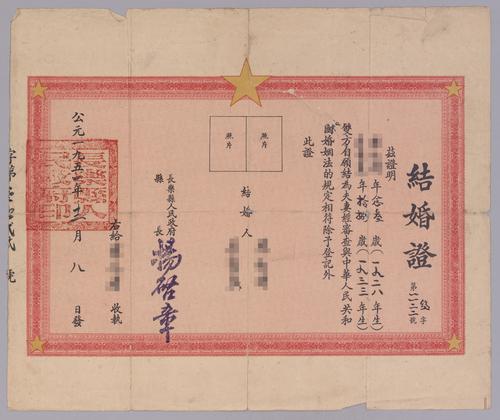 結婚證
字
第 號
茲證明
年 叁 歲(一九二八年生)
年拾捌歲(一九三三年生)
雙方自願結為夫妻經審查與中華人民共和
國婚姻法的規定相符除予登記外
此證
照片
照片
結婚人
長樂縣人民政府
縣長
右給 收執
公元一九五一年十二月八日發
字第 號